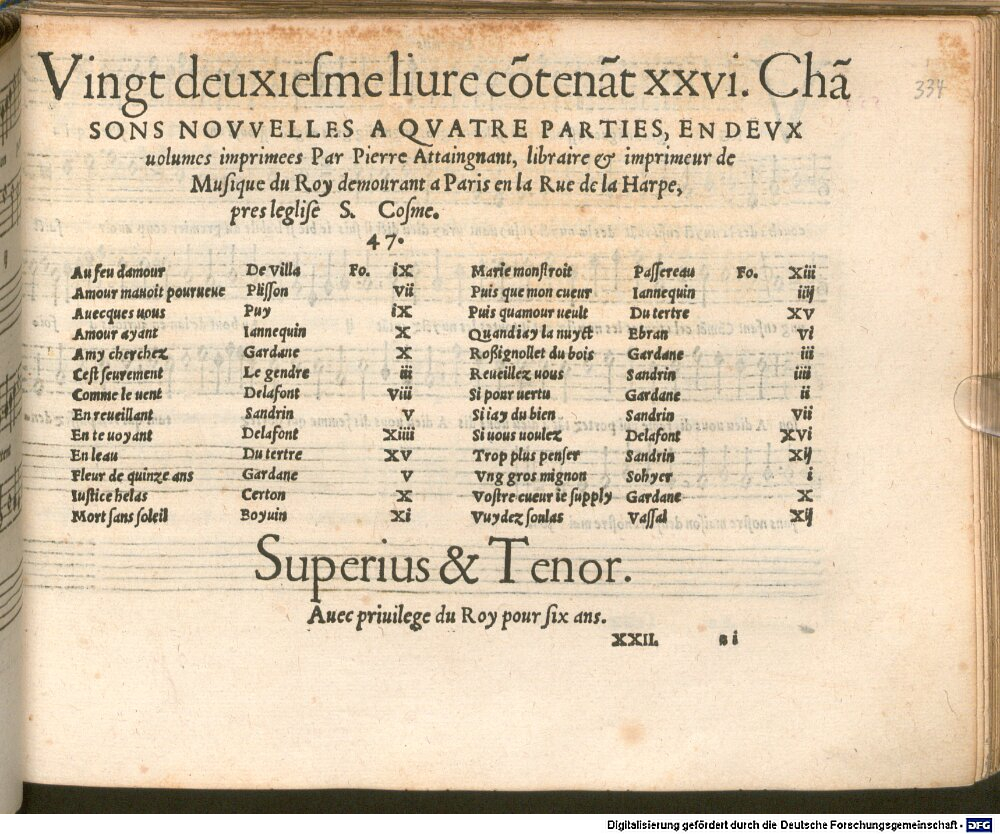 Vingt deuxiesme liure cõtenãt xxvi. Chã
SONS NOVVELLES A QVATRE PARTIES, EN DEVX
uolumes imprimees Par Pierre Attaingnant, libraire & imprimeur de
Musique du Roy demourant a Paris en la Rue de la Harpe,
pres leglise S. Cosme.
47.
334
Au feu damour De villa Fo. ix
Amour mauoit pourueue Plisson vii
Auecques uous Puy ix
Amour ayant Iannequin x
Amy cherchez Gardane x
Cest seurement Le gendre iii
Comme le uent Delafont viii
En reueillant Sandrin v
En te uoyant Delafont xiiii
En leau Du tertre xv
Fleur de quinze ans Gardane v
Iustice helas Certon x
Mort sans soleil Boyuin xi
Marie monstroit Passereau Fo. xiii
Puis que mon cueur Iannequin iiij
Puis quamour ueult Du tertre xv
Quand iay la nuyct Ebran vi
Rossignollet du bois Gardane iii
Reueillez uous Sandrin iiii
Si pour uertu Gardane ii
Si iay du bien Sandrin vii
Si uous uoulez Delafont xvi
Trop plus penser Sandrin xij
Vng gros mignon Sohyer i
Vostre cueur ie supply Gardane x
Vuydez soulas Vassal xij
Superius & Tenor.
Auec priuilege du Roy pour six ans.
XXII. a i
Digitalisierung gefördert durch die Deutsche Forschungsgemeinschaft - DFG